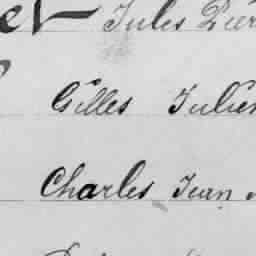 et Jules Pier
Gilles Julien
Charles Jean